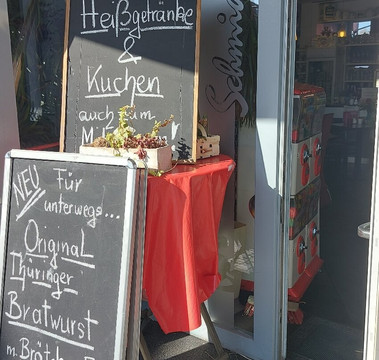 Heißgetränke
&
Kuchen
auch zum
NEU
Für
unterwegs...
Original
Thüringer
Bratwurst
m. Brötch